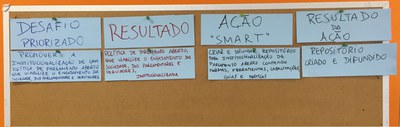 DESAFIO
PRIORIZADO
PROMOVER A
INSTITUCIONALIZAÇÃO DE UMA
POLÍTICA DE PARLAMENTO ABERTO
QUE VIABILIZE O ENGAJAMENTO DA
SOCIEDADE, DOS PARLAMENTARES E SERVIDORES
RESULTADO
POLÍTICA DE PARLAMENTO ABERTO,
QUE VIABILIZE O ENGAJAMENTO DA
SOCIEDADE, DOS PARLAMENTARES E
SERVIDORES,
INSTITUCIONALIZADA
AÇÃO
"SMART"
CRIAR E DIFUNDIR REPOSITÓRIO
PARA INSTITUCIONALIZAÇÃO DE
PARLAMENTO ABERTO CONTENDO
NORMAS, FERRAMENTAS, CAPACITAÇÕES
GUIAS E
RESULTADO
DA
AÇÃO
REPOSITÓRIO
CRIADO E DIFUNDIDO